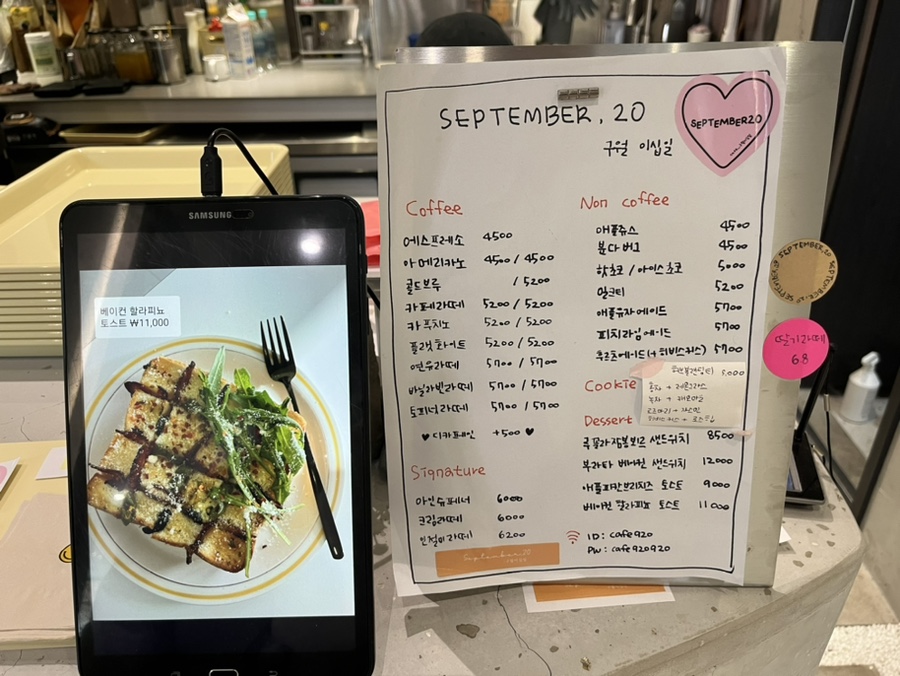 SAMSUNG
베이컨 할라피뇨
토스트 ₩11,000
SEPTEMBER. 20
구월 이십일
SEPTEMBER20
Coffee
에스프레소 4500
아메리카노 4500 / 4500
콜드브루 / 5200
카페라떼 5200 / 5200
카푸치노 5200 / 5200
플랫화이트 5200 / 5200
연유라떼 5700 / 5700
바닐라빈라떼 5700 / 5700
토피넛라떼 5700 / 5700
♥ 디카페인 +500 ♥
Signature
아인슈페너 6000
크림라떼 6000
인절미라떼 6200
September.20
Non coffee
애플쥬스 4500
분다버그 4500
핫초코 / 아이스초코 5000
밀크티 5200
애플유자에이드 5700
피치라임에이드 5700
(+히비스커스) 5700
Cookie
5.000
홍차 +
녹차 +
로즈마리 + 자스민
Dessert
콕꼴라잠봉뵈르 샌드위치 8500
부라타 바베큐 샌드위치 12000
애플피칸브리치즈 토스트 9000
베이컨 할라피뇨 토스트 11000
ID: cafe920
PW: cafe920920
SEPTEMBER.20
딸기라떼
6.8